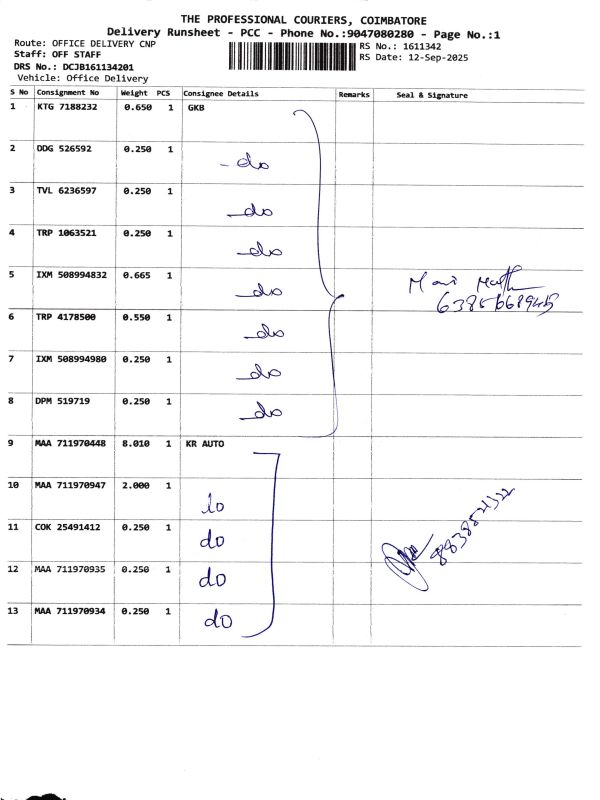 THE PROFESSIONAL COURIERS, COIMBATORE
Delivery Runsheet - PCC - Phone No.:9047080280 - Page No.:1
Route: OFFICE DELIVERY CNP
Staff: OFF STAFF
DRS No.: DCJB161134201
Vehicle: Office Delivery
RS No.: 1611342
RS Date: 12-Sep-2025
S No Consignment No Weight PCS Consignee Details Remarks Seal & Signature
1 KTG 7188232 0.650 1 GKB
2 DDG 526592 0.250 1 - do
3 TVL 6236597 0.250 1 - do
4 TRP 1063521 0.250 1 - do
5 IXM 508994832 0.665 1 - do
6 TRP 4178500 0.550 1 - do
7 IXM 508994980 0.250 1 - do
8 DPM 519719 0.250 1 - do
9 MAA 711970448 8.010 1 KR AUTO
10 MAA 711970947 2.000 1 do
11 COK 25491412 0.250 1 do
12 MAA 711970935 0.250 1 do
13 MAA 711970934 0.250 1 do